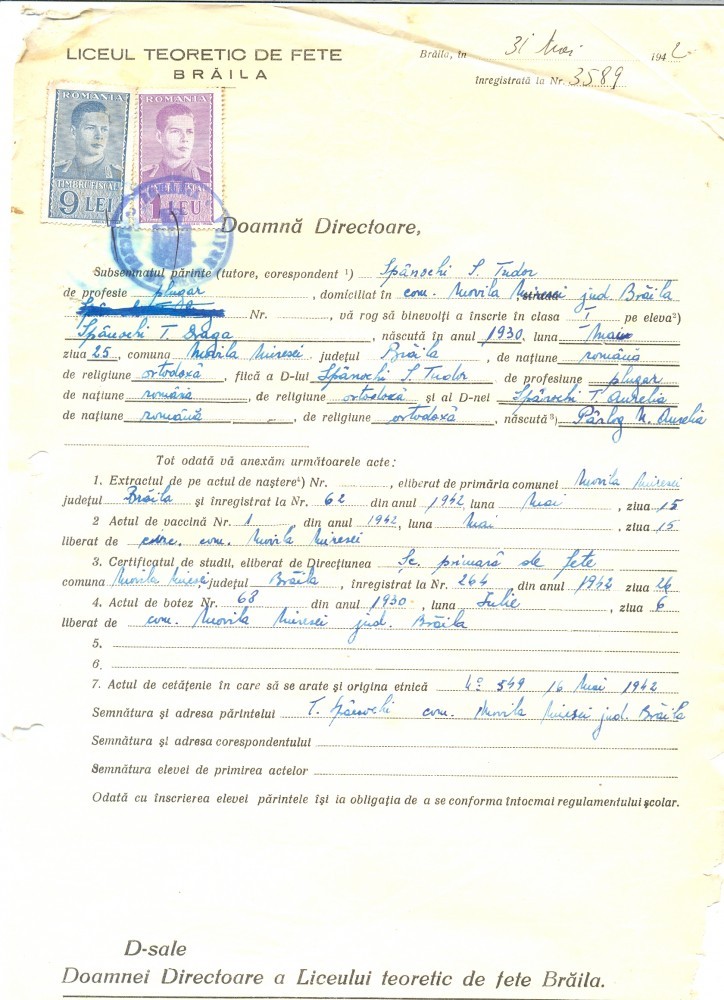 LICEUL TEORETIC DE FETE
BRĂILA
Brăila, în 31 Mai 1942
înregistrată la Nr. 3589
ROMANIA
TIMBRU FISCAL
9 LEI
ROMANIA
1 LEU
Doamnă Directoare,
Subsemnatul părinte (tutore, corespondent ¹) Spânochi S. Tudor
de profesie plugar, domiciliat în com. Movila Miresei jud. Brăila
Nr. , vă rog să binevoiți a înscrie în clasa I pe eleva²)
Spânochi T. Draga, născută în anul 1930, luna Mai
ziua 25, comuna Movila Miresei județul Brăila, de națiune română
de religiune ortodoxă, fiică a D-lui Spânochi S. Tudor de profesiune plugar
de națiune română, de religiune ortodoxă și al D-nei Spânochi T. Aurelia
de națiune română, de religiune ortodoxă, născută ³) Pârlog N. Aurelia
Tot odată vă anexăm următoarele acte:
1. Extractul de pe actul de naștere⁴) Nr. , eliberat de primăria comunei Movila Miresei
județul Brăila și înregistrat la Nr. 62 din anul 1942, luna Mai, ziua 15
2 Actul de vaccină Nr. 1, din anul 1942, luna Mai, ziua 15
liberat de circ. com. Movila Miresei
3. Certificatul de studii, eliberat de Direcțiunea Sc. primară de fete
comuna Movila Miresei județul Brăila, înregistrat la Nr. 264 din anul 1942 ziua 26
4. Actul de botez Nr. 68 din anul 1930, luna Iulie, ziua 6
liberat de com. Movila Miresei jud. Brăila
5.
6.
7. Actul de cetățenie în care să se arate și origina etnică No 549 16 Mai 1942
Semnătura și adresa părintelui T. Spânochi com. Movila Miresei jud. Brăila
Semnătura și adresa corespondentului
Semnătura elevei de primirea actelor
Odată cu înscrierea elevei părintele își ia obligația de a se conforma întocmai regulamentului școlar.
D-sale
Doamnei Directoare a Liceului teoretic de fete Brăila.